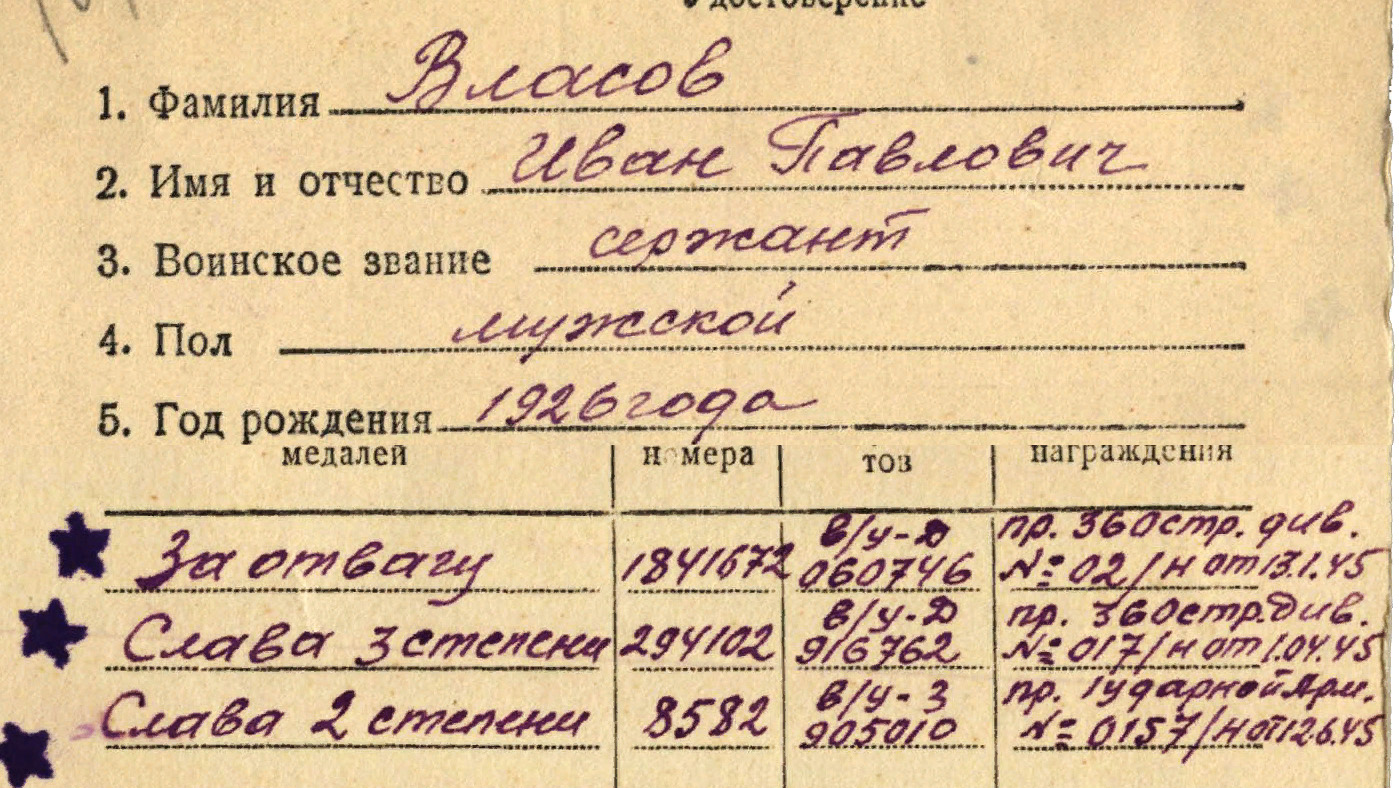 Удостоверение
1. Фамилия Власов
2. Имя и отчество Иван Павлович
3. Воинское звание сержант
4. Пол мужской
5. Год рождения 1926 года
медалей номера тов награждения
За отвагу 1841672 в/у-Д 060746 пр. 360 стр. див. № 02/н от 13.1.45
Слава 3 степени 294102 в/у-Д 916762 пр. 360 стр. див. № 017/н от 1.04.45
Слава 2 степени 8582 в/у-З 905010 пр. 1 ударной Арм. № 0157/н от 12.6.45